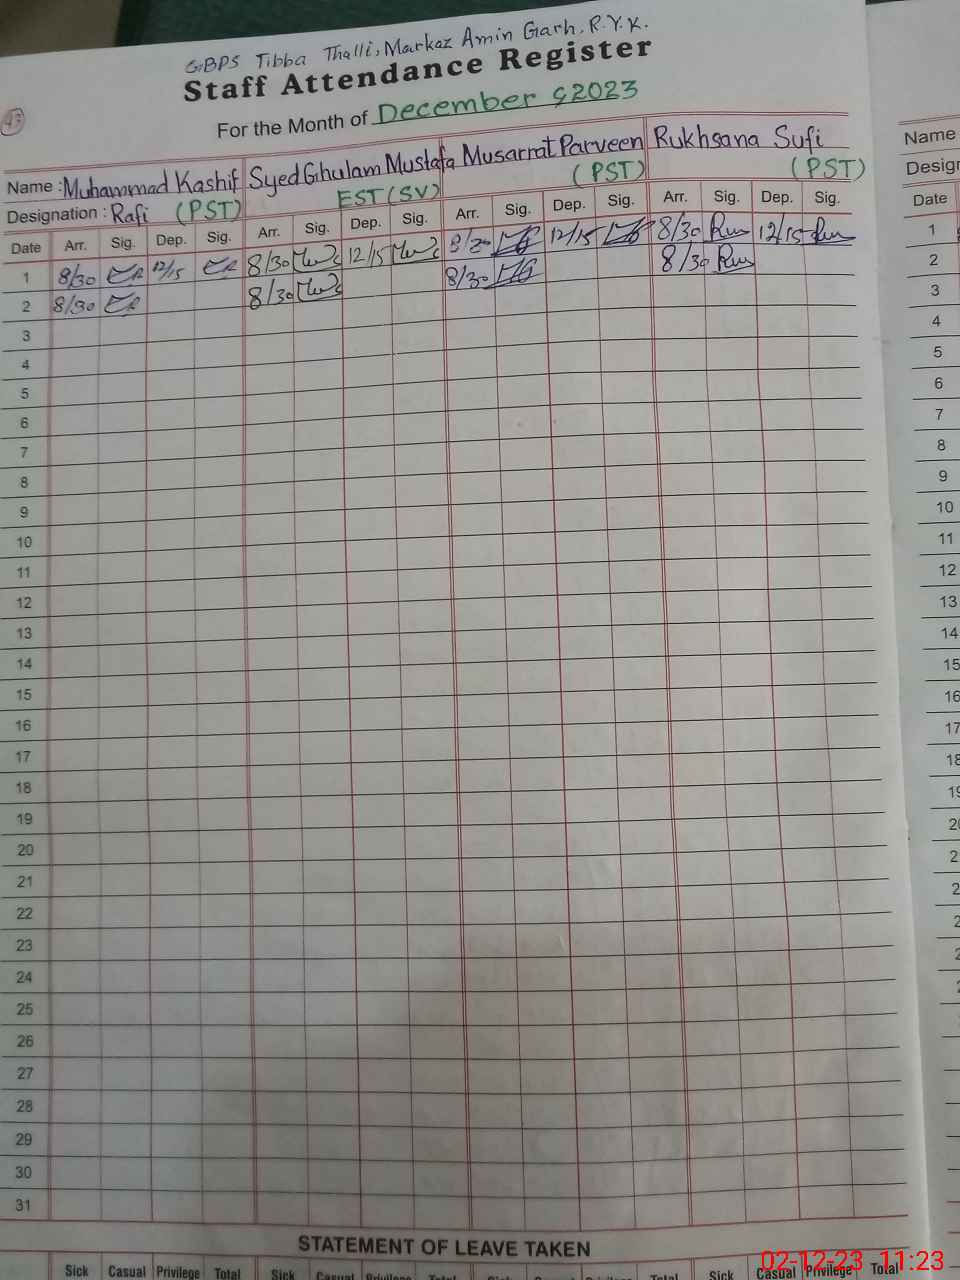 GBPS Tibba Thalli, Markaz Amin Garh, R.Y.K.
Staff Attendance Register
43
For the Month of December 2023
Name : Muhammad Kashif Syed Ghulam Mustafa Musarrat Parveen Rukhsana Sufi
Designation : Rafi (PST) EST (SV) (PST) (PST)
Date Arr. Sig. Dep. Sig. Arr. Sig. Dep. Sig. Arr. Sig. Dep. Sig. Arr. Sig. Dep. Sig.
1 8/30 12/15 8/30 12/15 8/30 12/15 8/30 12/15
2 8/30 8/30 8/30 8/30
3
4
5
6
7
8
9
10
11
12
13
14
15
16
17
18
19
20
21
22
23
24
25
26
27
28
29
30
31
STATEMENT OF LEAVE TAKEN
Sick Casual Privilege Total Sick Casual Privilege Total Sick Casual Privilege Total Sick Casual Privilege Total
Name
Date
1
2
3
4
5
6
7
8
9
10
11
12
13
14
15
16
17
18
02-12-23 11:23